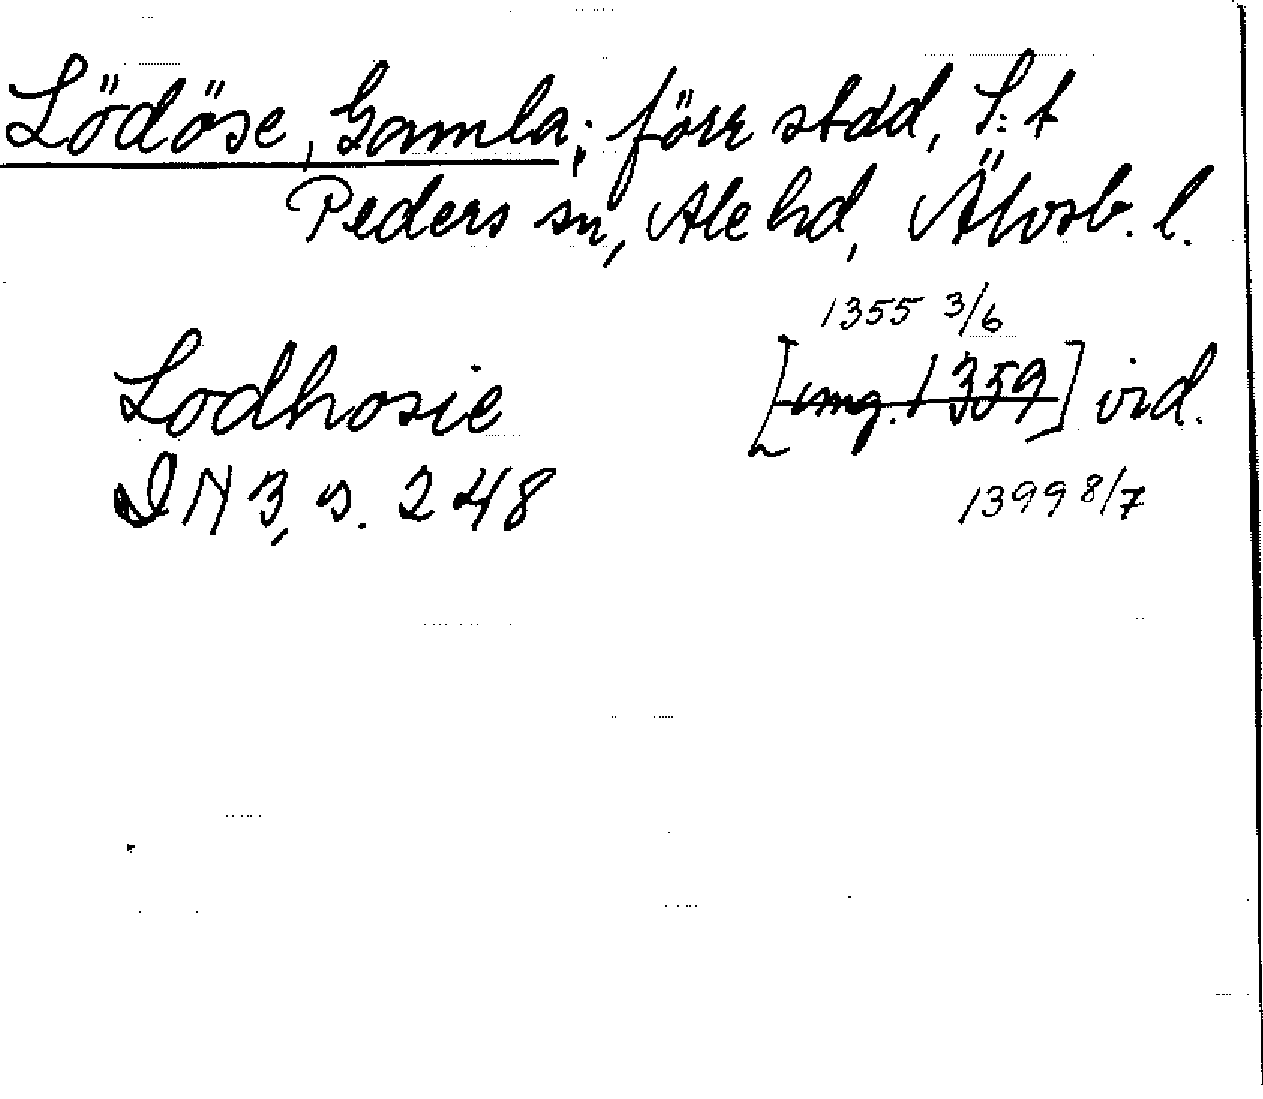 Lödöse, Gamla; förr stad, S:t
Peders sn, Ale hd, Älvsb. l.
1355 3/6
Lodhosie [omg. 1359] vid.
DN 3, s. 248 1399 8/7